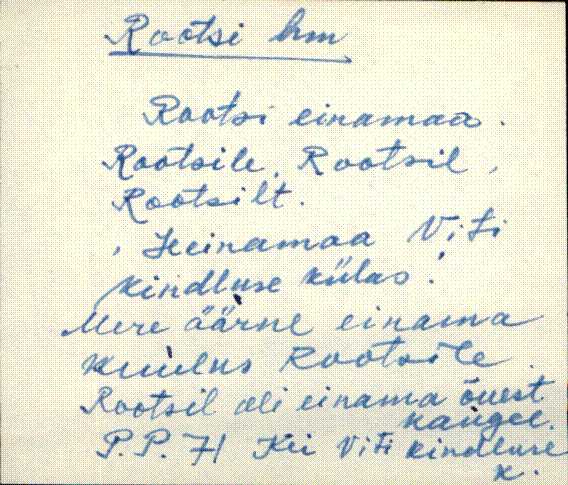 Rootsi hm
Rootsi einamaa.
Rootsile, Rootsil,
Rootsilt.
, Heinamaa Viti
kindluse külas.
Mere äärne einama
kuulus Rootsile.
Rootsil oli einama õuest
kaugel.
P.P. 71 Kei Viti kindluse
k.